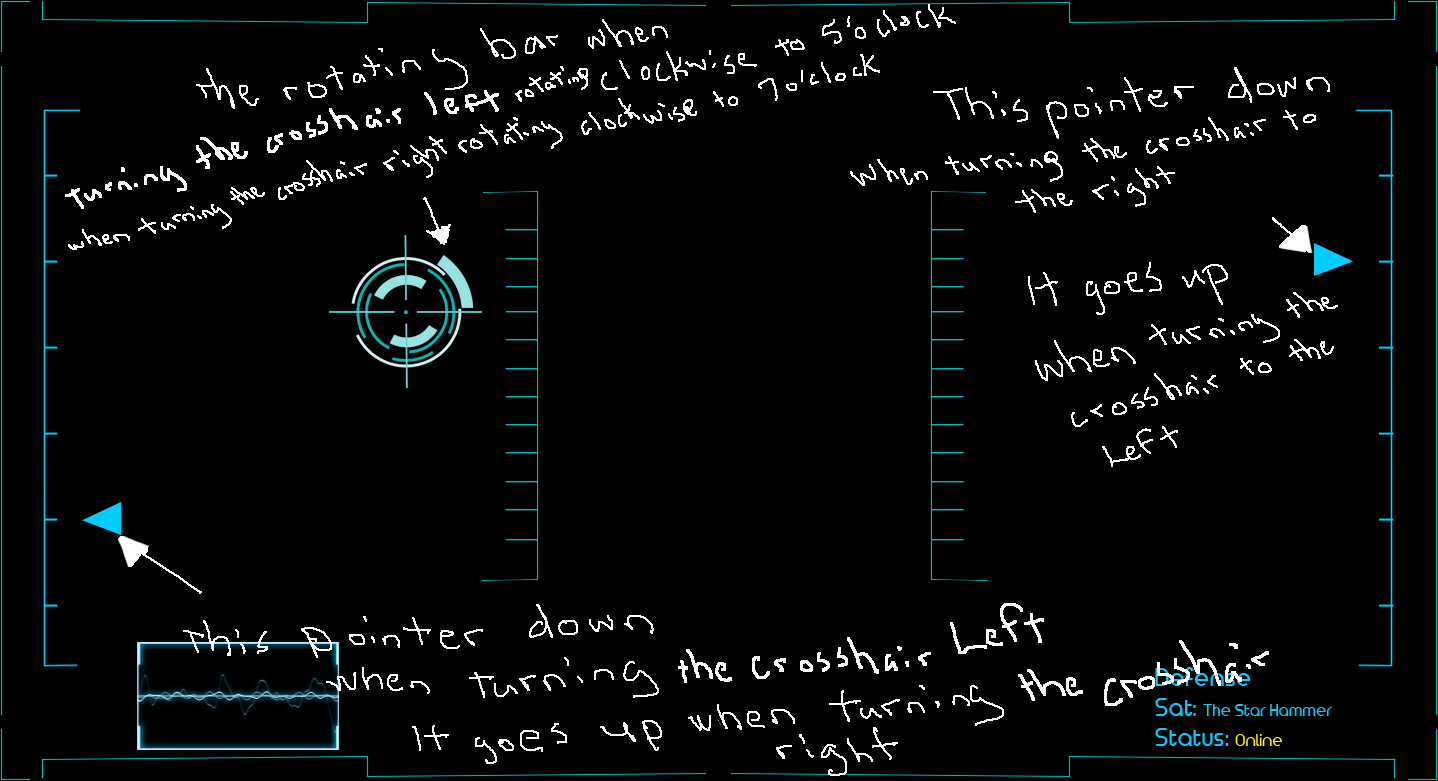 the rotating bar when
turning the crosshair left rotating clockwise to 5'o clock
when turning the crosshair right rotating clockwise to 7o'clock
This pointer down
when turning the crosshair to
the right
It goes up
when turning the
crosshair to the
Left
This pointer down
when turning the crosshair Left
It goes up when turning the crosshair
right
Defense
Sat: The Star Hammer
Status: Online